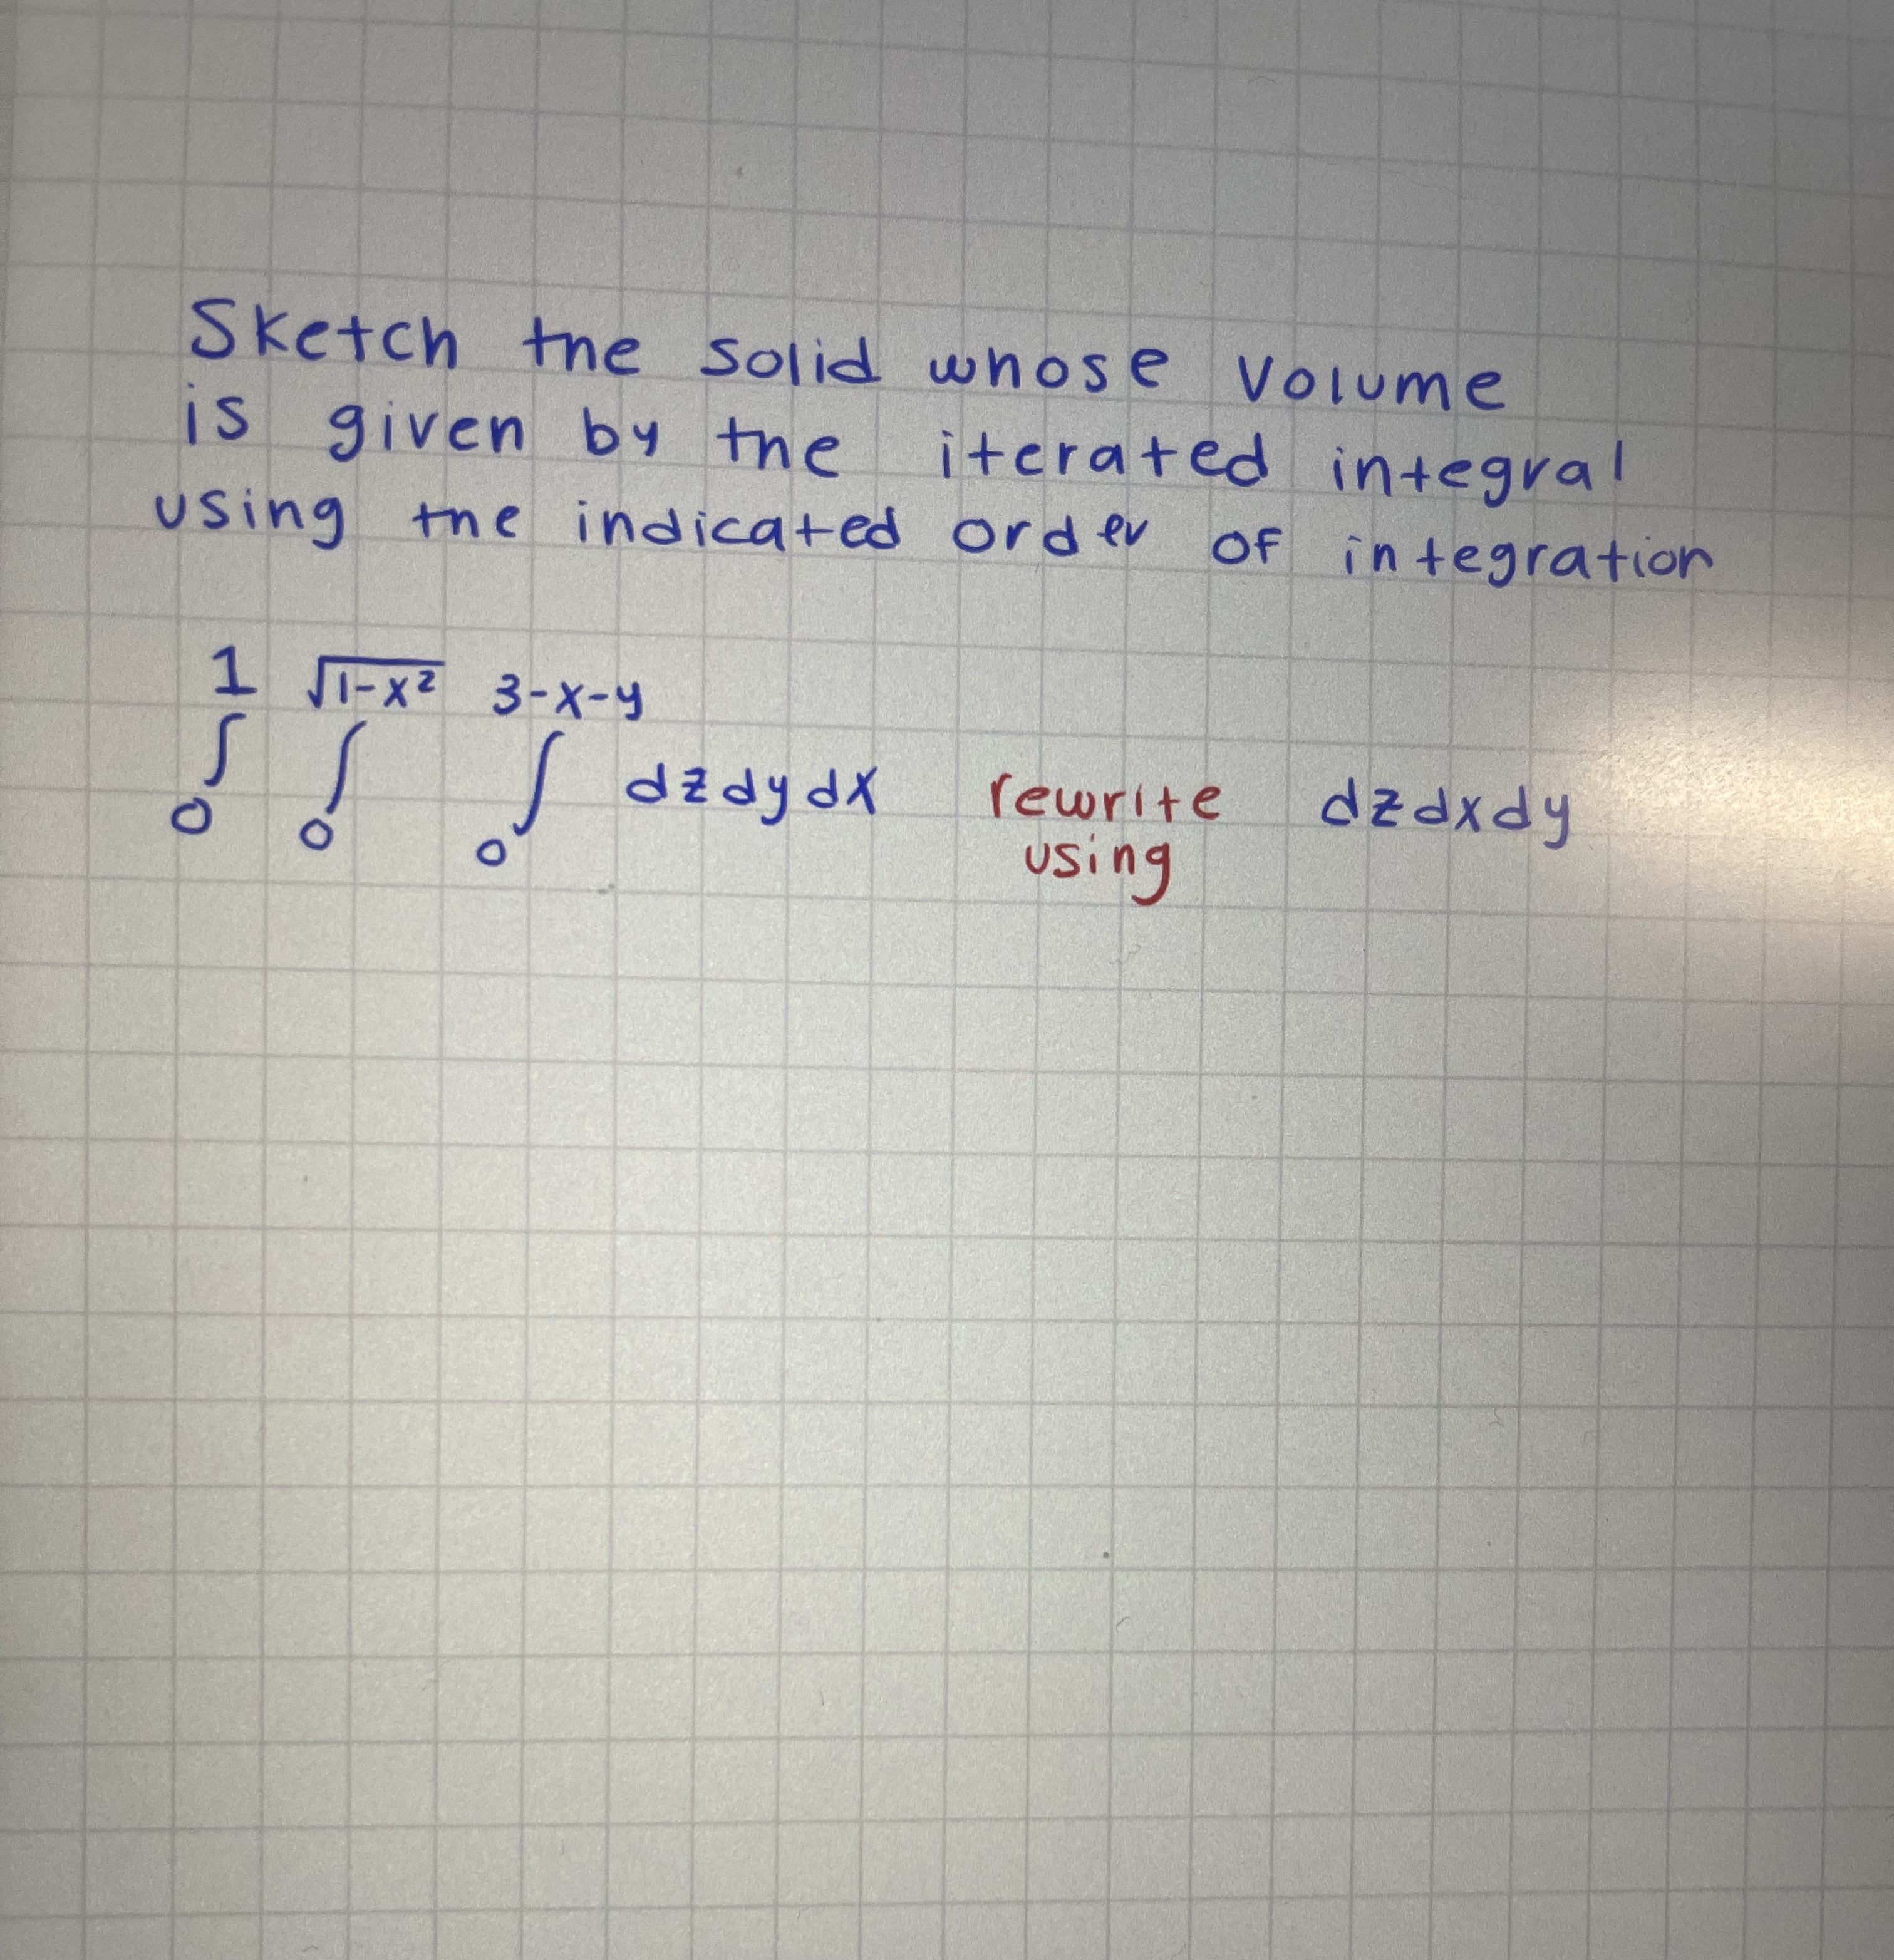 Sketch the solid whose Volume
is given by the iterated integral
using the indicated order of integration
1 √1-x² 3-x-y
∫ ∫ ∫ dzdydx rewrite dzdxdy
0 0 0 using